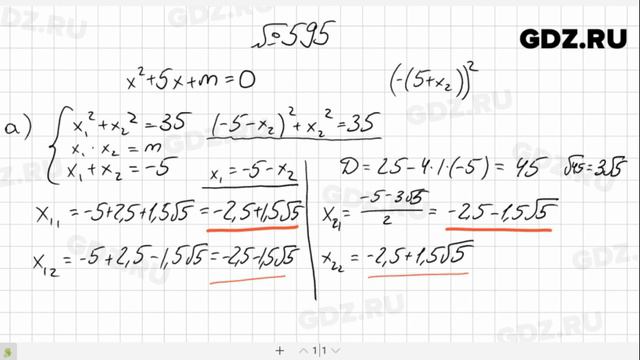 №595
GDZ.RU
x²+5x+m=0
(-(5+x₂))²
а) { x₁²+x₂²=35 (-5-x₂)²+x₂²=35
x₁·x₂=m
x₁+x₂=-5 x₁=-5-x₂
D=25-4·1·(-5)=45 √45=3√5
x₁₁=-5+2,5+1,5√5=-2,5+1,5√5
x₂₁=(-5-3√5)/2=-2,5-1,5√5
x₁₂=-5+2,5-1,5√5=-2,5-1,5√5
x₂₂=-2,5+1,5√5
+ 1|1